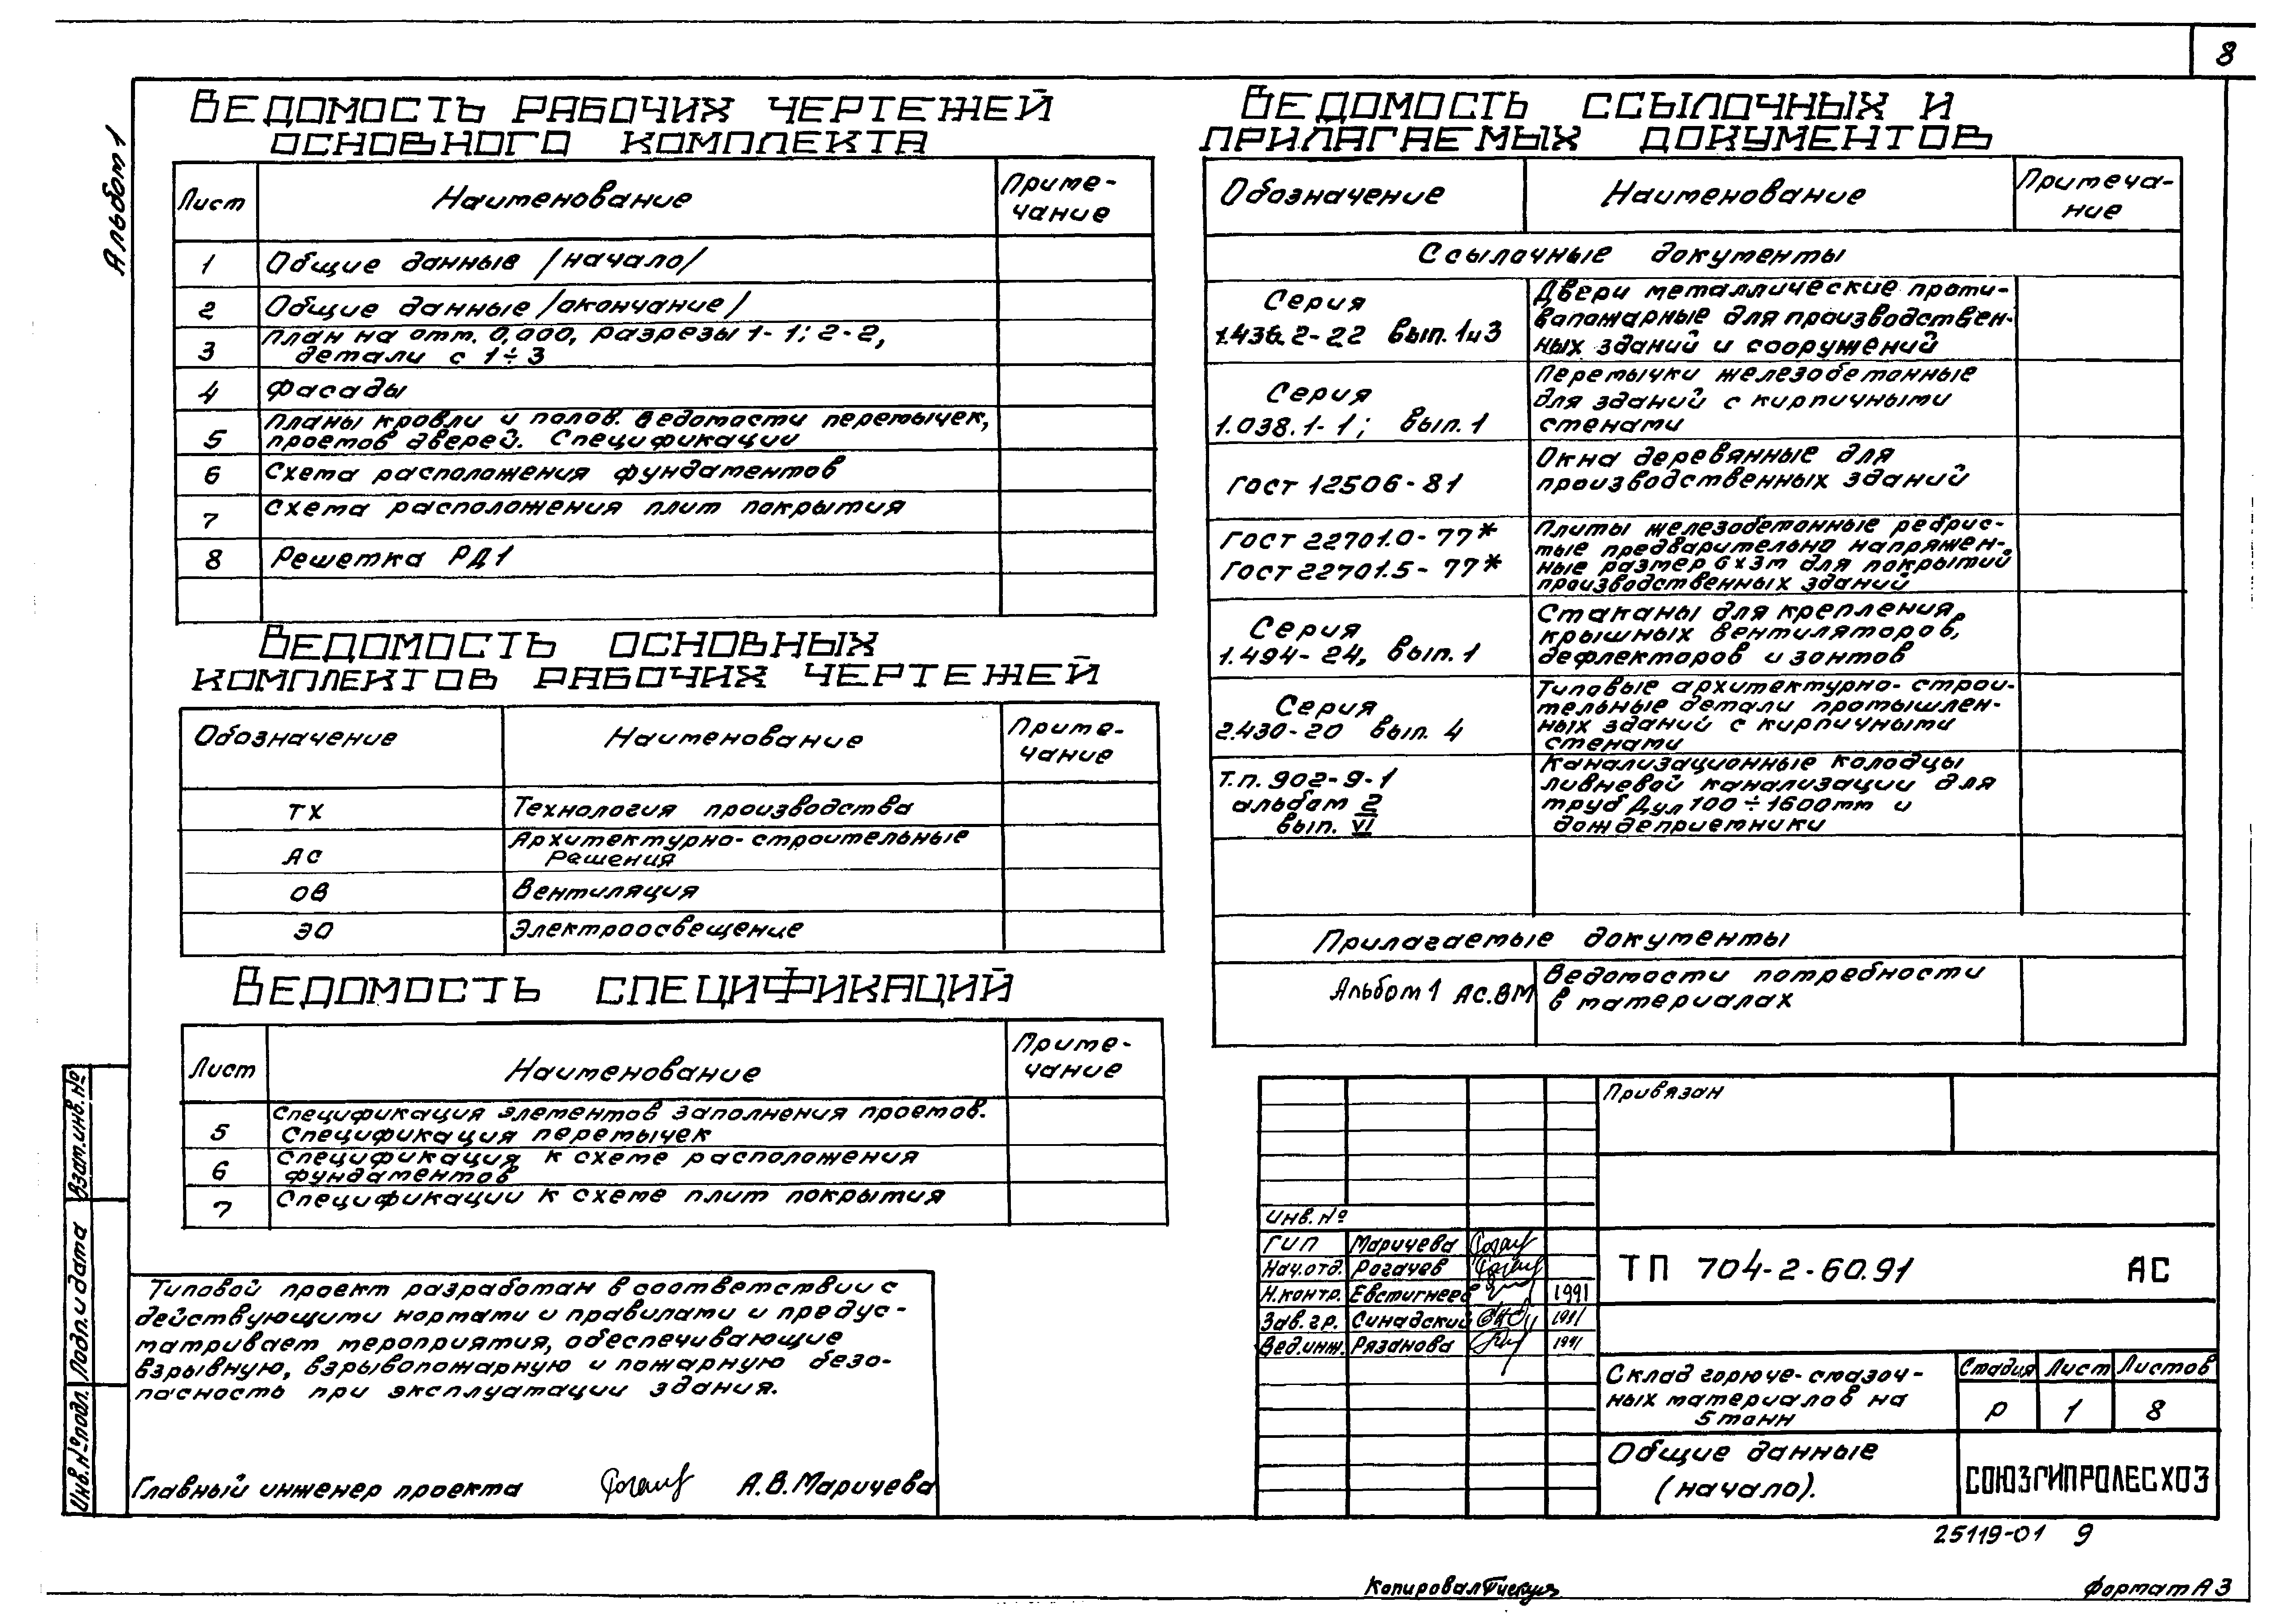 8
Альбом 1
Ведомость рабочих чертежей
основного комплекта
Лист
Наименование
Приме-
чание
1
Общие данные /начало/
2
Общие данные /окончание/
3
План на отм. 0,000, разрезы 1-1; 2-2,
детали с 1÷3
4
Фасады
5
Планы кровли и полов. Ведомости перемычек,
проемов дверей. Спецификации
6
Схема расположения фундаментов
7
Схема расположения плит покрытия
8
Решетка РД1
Ведомость основных
комплектов рабочих чертежей
Обозначение
Наименование
Приме-
чание
ТХ
Технология производства
АС
Архитектурно-строительные
Решения
ОВ
Вентиляция
ЭО
Электроосвещение
Ведомость спецификаций
Лист
Наименование
Приме-
чание
5
Спецификация элементов заполнения проемов.
Спецификация перемычек
6
Спецификация к схеме расположения
фундаментов
7
Спецификации к схеме плит покрытия
Типовой проект разработан в соответствии с
действующими нормами и правилами и предус-
матривает мероприятия, обеспечивающие
взрывную, взрывопожарную и пожарную безо-
пасность при эксплуатации здания.
Главный инженер проекта
А.В. Маричева
Взам.инв.№
Подп. и дата
Инв.№подл.
Ведомость ссылочных и
прилагаемых документов
Обозначение
Наименование
Примеча-
ние
Ссылочные документы
Серия
1.436.2-22 вып. 1и3
Двери металлические проти-
вопожарные для производствен-
ных зданий и сооружений
Серия
1.038.1-1; вып. 1
Перемычки железобетонные
для зданий с кирпичными
стенами
Гост 12506-81
Окна деревянные для
производственных зданий
Гост 22701.0-77*
Гост 22701.5-77*
Плиты железобетонные ребрис-
тые предварительно напряжен-
ные размер 6х3м для покрытий
производственных зданий
Серия
1.494-24, вып. 1
Стаканы для крепления
крышных вентиляторов,
дефлекторов и зонтов
Серия
2.430-20 вып. 4
Типовые архитектурно-строи-
тельные детали промышлен-
ных зданий с кирпичными
стенами
Т.п. 902-9-1
альбом 2
вып. VI
Канализационные колодцы
ливневой канализации для
труб Дул 100÷1600мм и
дождеприемники
Прилагаемые документы
Альбом 1 АС.ВМ
Ведомости потребности
в материалах
Привязан
Инв. №
ГИП Маричева
Нач.отд. Рогачев
Н.контр. Евстигнеев 1991
Зав.гр. Синадский 1991
Вед.инж. Рязанова 1991
ТП 704-2-60.91 АС
Склад горюче-смазоч-
ных материалов на
5 тонн
Стадия Лист Листов
Р 1 8
Общие данные
(начало).
СОЮЗГИПРОЛЕСХОЗ
25119-01 9
Копировал
Формат А3